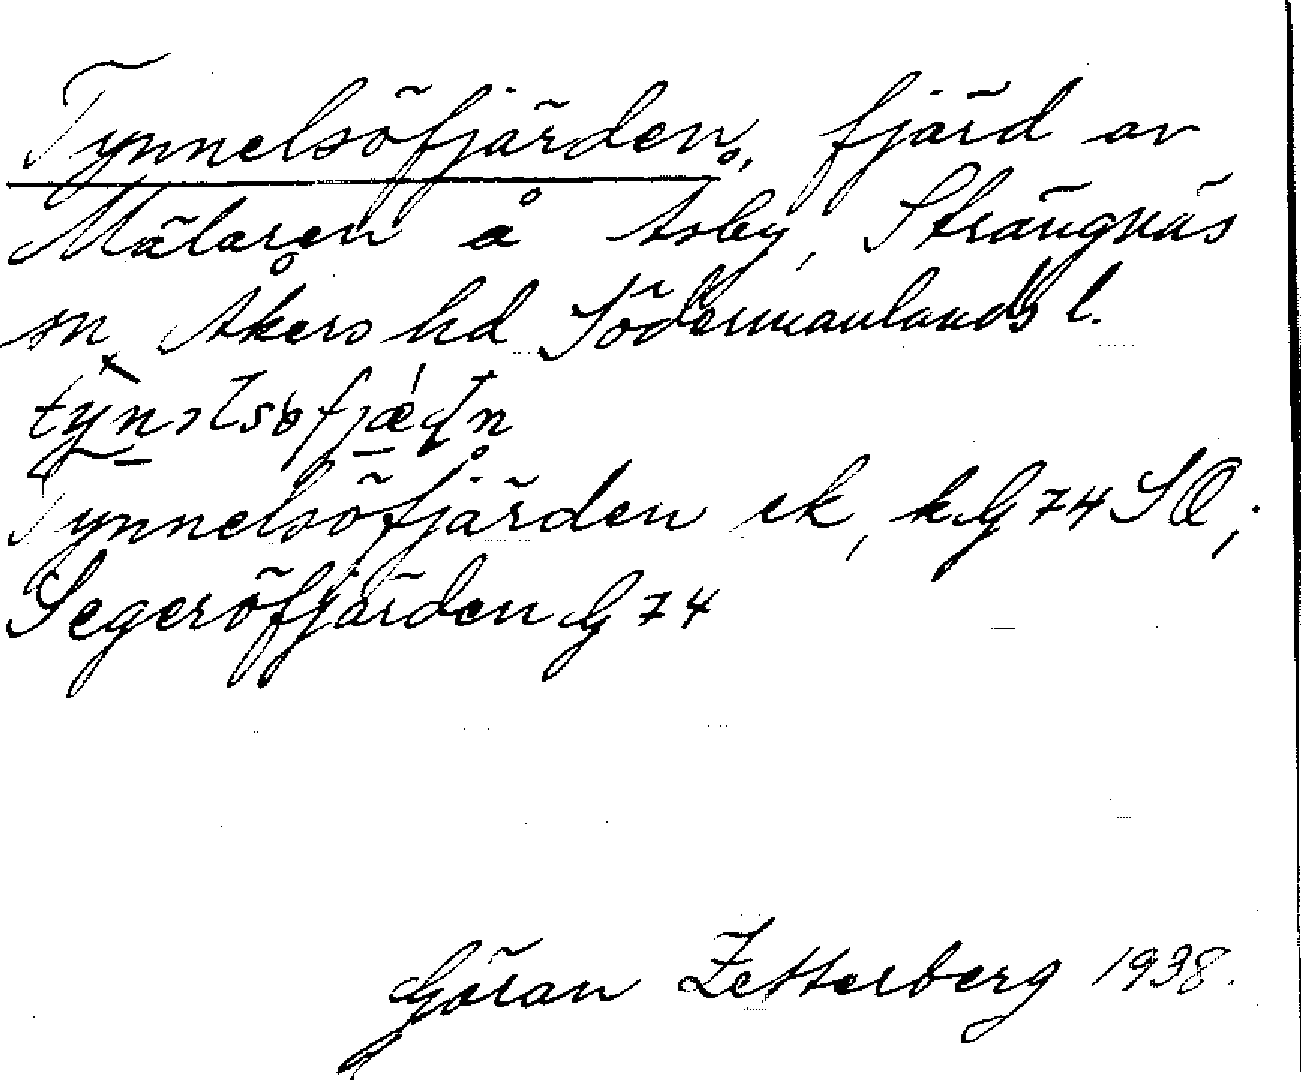 Tynnelsöfjärden, fjärd av
Mälaren å Åsby, Strängnäs
sn Åkers hd Södermanlands l.
Tynnelsöfjärden ek, k. G 74 SO;
Segeröfjärden G 74
Göran Zetterberg 1938.